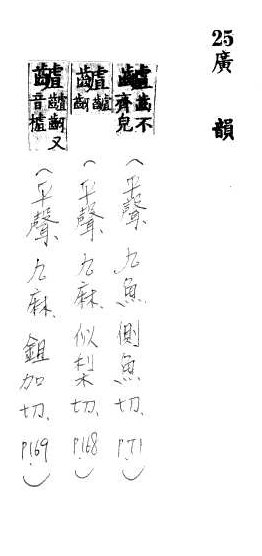 25廣韻
䶥齒不齊皃(平聲、九魚 側魚切、P.71)
䶥䶥齖(平聲、九麻、似梨切、P.168)
䶥䶥齖又音樝(平聲、九麻、鉏加切、P.169)